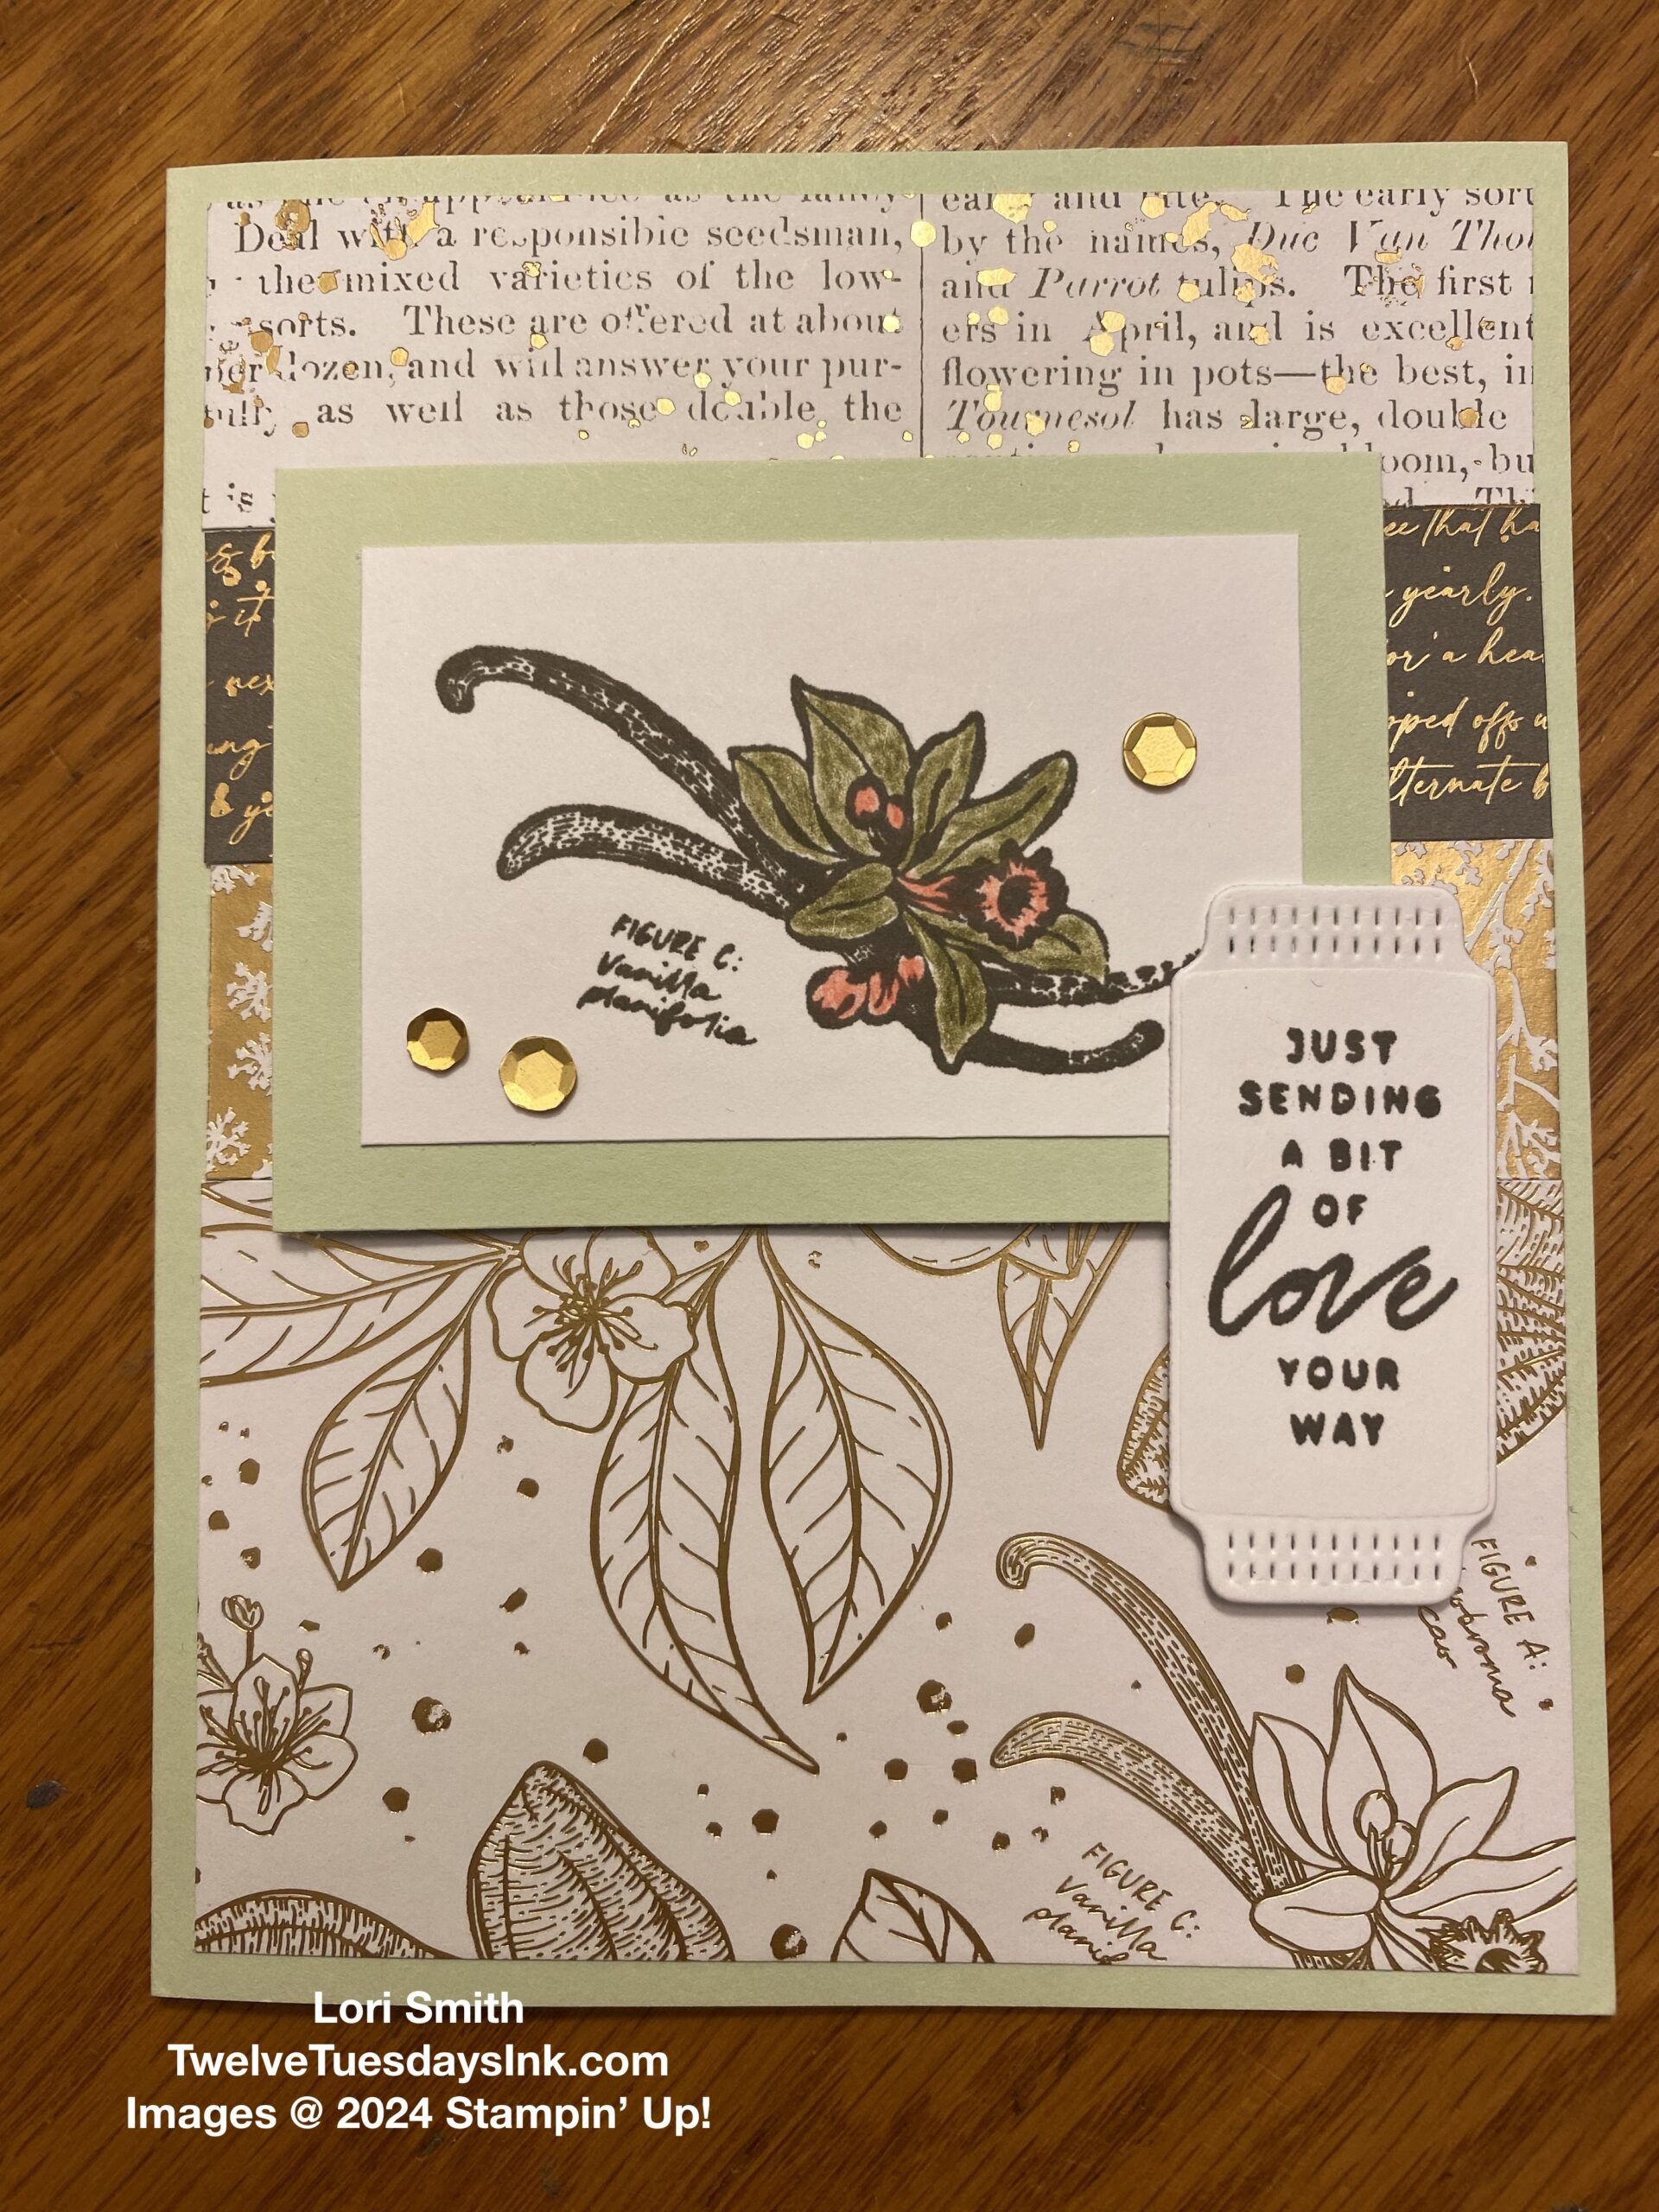 Deal with a responsible seedsman,
the mixed varieties of the low-
sorts. These are offered at about
dozen, and will answer your pur-
as well as those double the
and The early sort
by the names, Duc Van Thol
and Parrot tulips. The first
ers in April, and is excellent
flowering in pots—the best, in
Tournesol has large, double
bloom, bu
that ha
yearly.
or a hea
pped off u
lternate b
FIGURE C:
Vanilla
planifolia
JUST
SENDING
A BIT
OF
love
YOUR
WAY
FIGURE A:
obroma
cao
FIGURE C:
Vanilla
planif
Lori Smith
TwelveTuesdaysInk.com
Images @ 2024 Stampin’ Up!